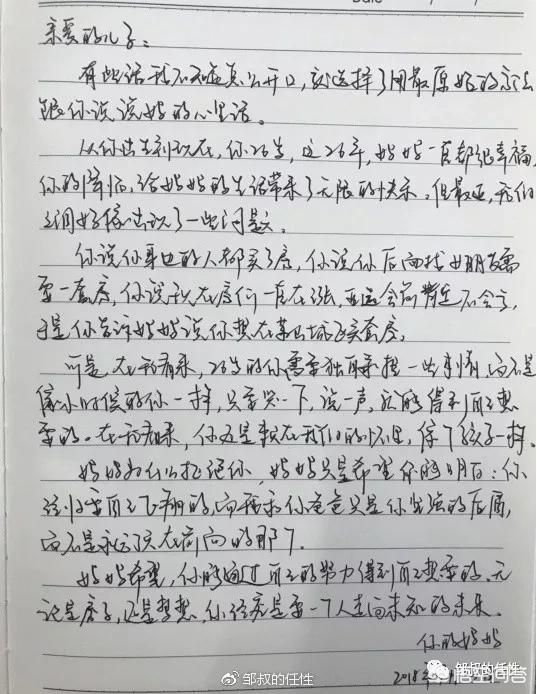 亲爱的儿子：
有些话我不知道怎么开口，就选择了用最原始的方法
跟你说说妈的心里话。
从你出生到现在，你26岁，这26年，妈妈一直都很幸福，
你的降临，给妈妈的生活带来了无限的快乐。但最近，我们
之间好像出现了一些问题。
你说你身边的人都买了房，你说你后面找女朋友需
要一套房，你说现在房价一直在涨，再
于是你告诉妈妈说你想在某巴城区买套房。
可是，在我看来，26岁的你需要独自承担一些事情，而不是
像小时候的你一样，只要哭一下，说一声，就能得到自己想
要的。在我看来，你还是赖在我们的怀里，像个孩子一样。
妈妈为什么拒绝你，妈妈只是希望你能明白：你
该学自己飞翔的，而我和你爸爸只是你坚强的后盾，
而不是永远顶在前面的那个。
妈妈希望，你能通过自己的努力得到自己想要的，无
论是房子，还是梦想，你终究是要一个人走向未知的未来。
你的妈妈
2018年
邹叔的任性
邹叔的任性
悟空问答